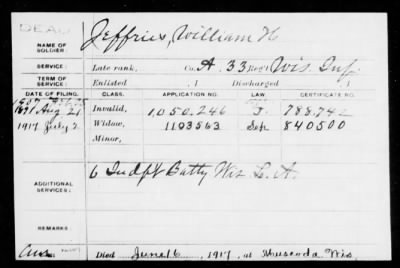 DEAD
NAME OF SOLDIER: Jeffries, William H
SERVICE: Late rank, Co. A, 33 Reg't Wis. Inf.
TERM OF SERVICE: Enlisted , 1 Discharged , 1
DATE OF FILING. CLASS. APPLICATION NO. LAW. CERTIFICATE NO.
Aug 21 Invalid, 1,050,246 J. 788,742
1917 July 2 Widow, 1103563 840500
Minor,
ADDITIONAL SERVICES: 6 Indpt Batty Wis L. A.
REMARKS:
Died June 16, 1917, at Muscoda Wis.